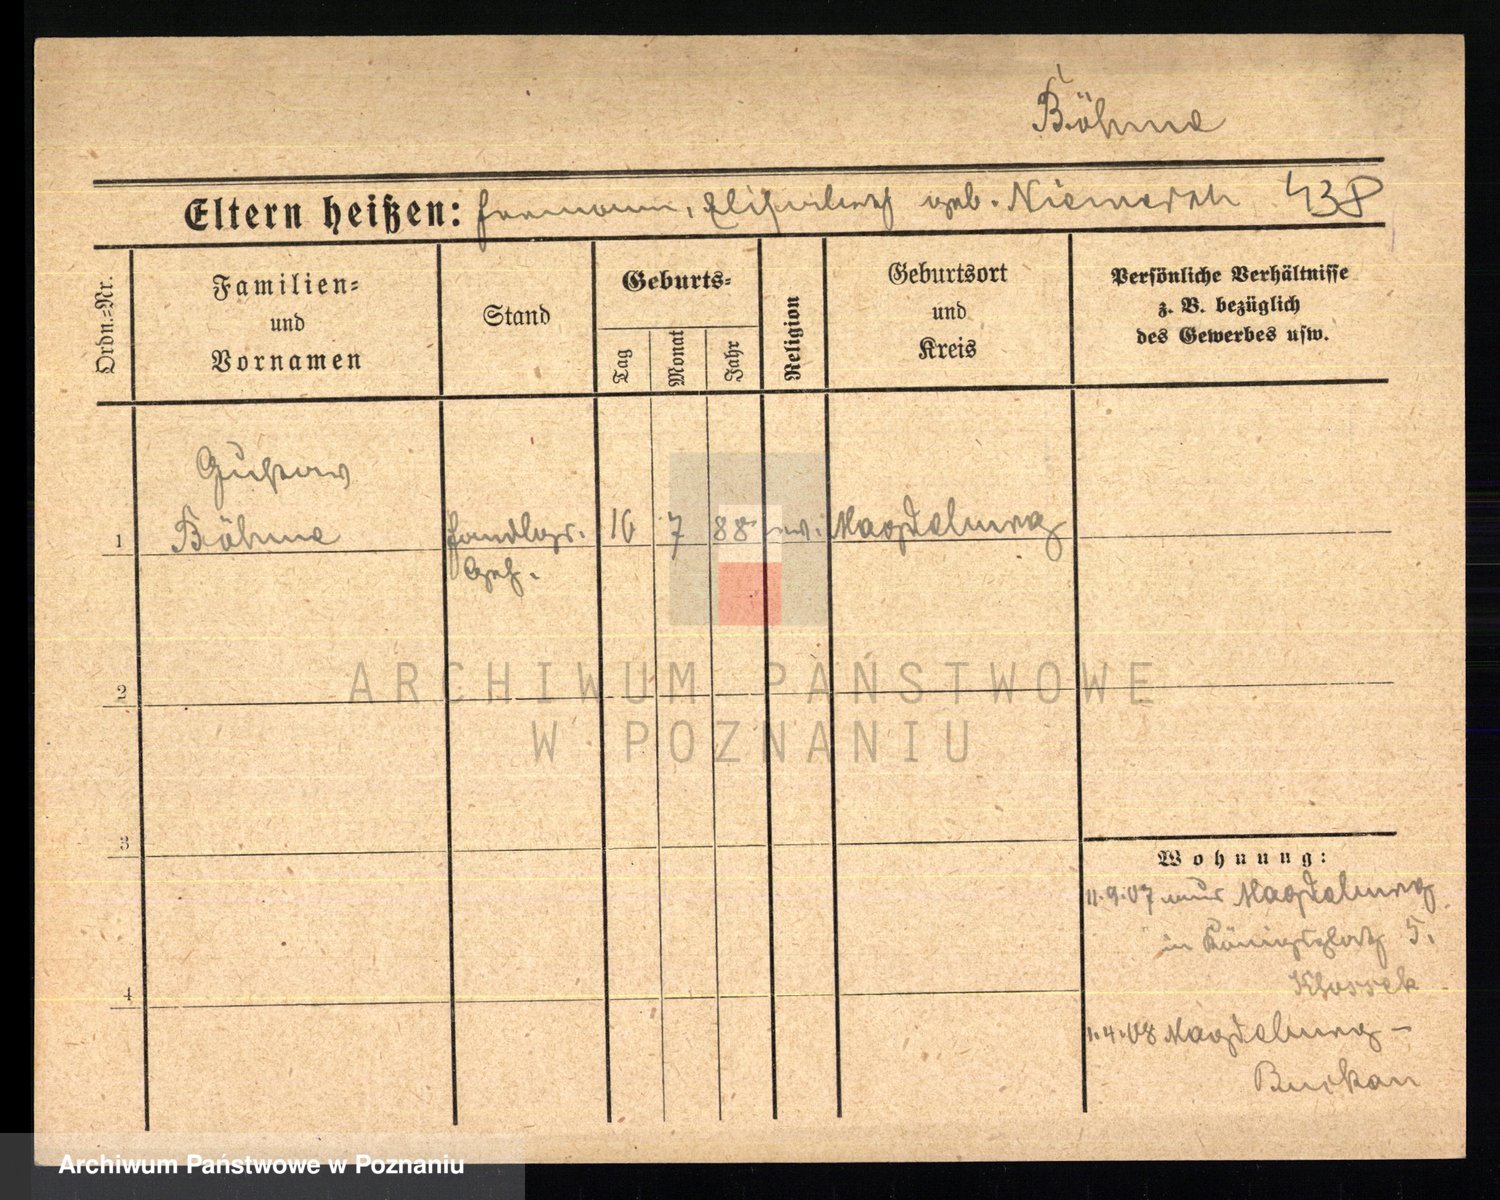 Böhme
Eltern heißen: Hermann, Elisabeth geb. Niemersch 438
Ordn.=Nr.
Familien=
und
Vornamen
Stand
Geburts=
Tag
Monat
Jahr
Religion
Geburtsort
und
Kreis
Persönliche Verhältnisse
z. B. bezüglich
des Gewerbes usw.
Gustav
1 Böhme Handlgs. 10 7 88 ev. Magdeburg
Geh.
2
3
4
Wohnung:
11.9.07 aus Magdeburg
in Königsplatz 5.
1.4.08 Magdeburg-
Buckau
ARCHIWUM PAŃSTWOWE
W POZNANIU
Archiwum Państwowe w Poznaniu